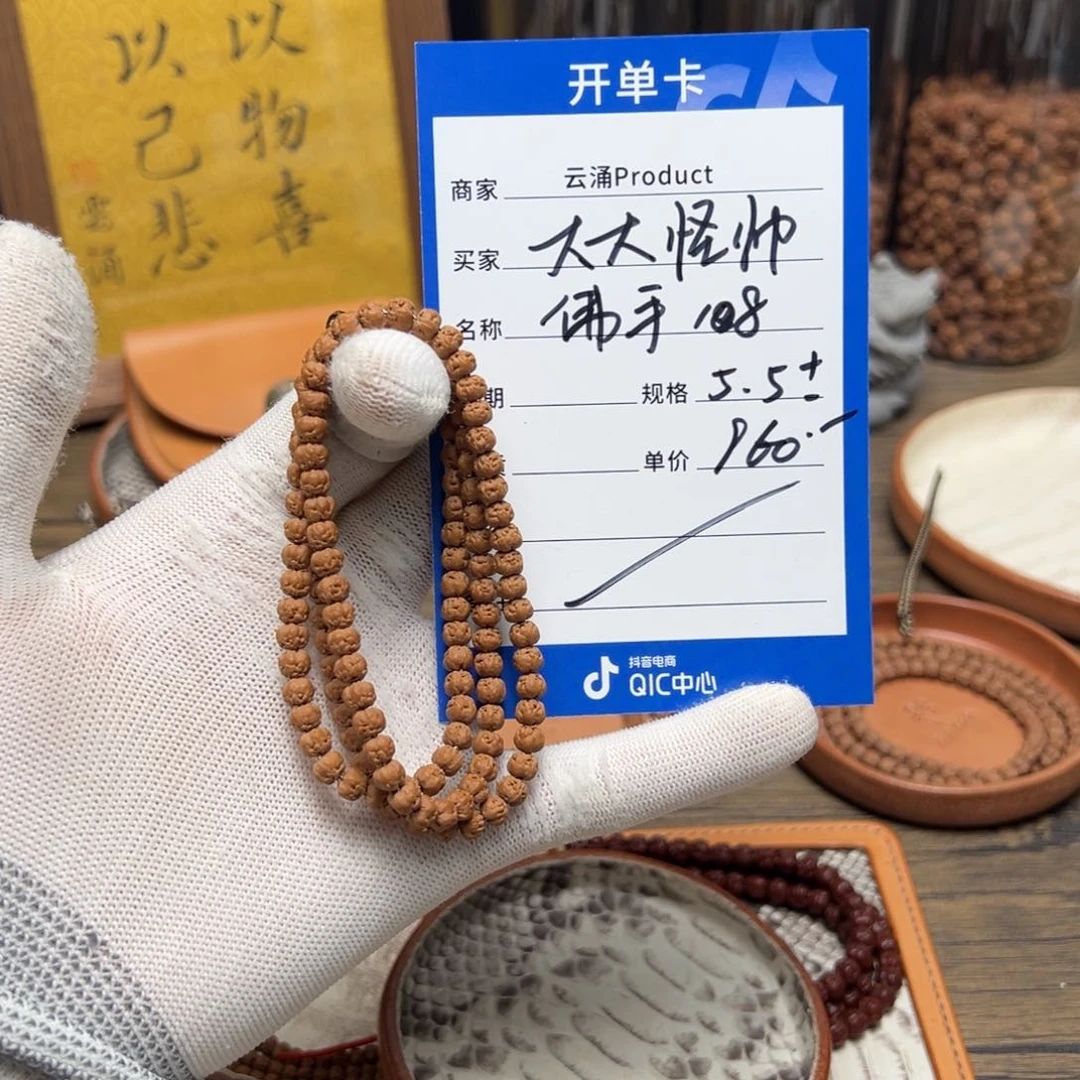 以物喜
以己悲
雲涌
开单卡
商家 云涌Product
买家 大大怪帅
名称 佛手 108
期 规格 5.5±
单价 960.-
抖音电商
QIC中心